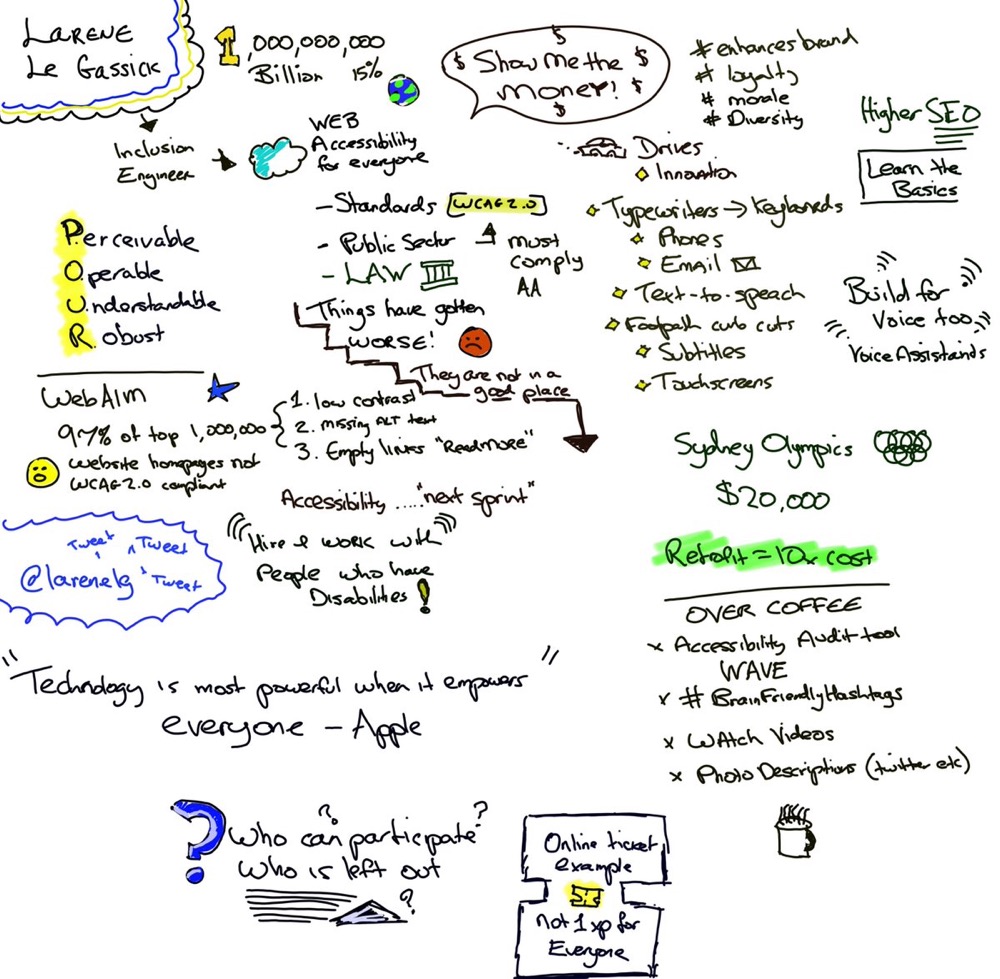 LARENE
Le Gassick
1,000,000,000
Billion 15%
Inclusion
Engineer
WEB
Accessibility
for everyone
$ Show me the $
$ money! $
$
$
# enhances brand
# loyalty
# morale
# Diversity
Higher SEO
Learn the
Basics
Drives
Innovation
Typewriters → Keyboards
Phones
Email
Text-to-speach
Footpath curb cuts
Subtitles
Touchscreens
Build for
Voice too
Voice Assistands
Perceivable
Operable
Understandable
Robust
- Standards WCAG 2.0
- Public Sector
- LAW
must
comply
AA
Things have gotten
WORSE!
They are not in a
good place
WebAIM
97% of top 1,000,000
website homepages not
WCAG 2.0 compliant
1. low contrast
2. missing ALT text
3. Empty links "Readmore"
Accessibility ....."next sprint"
Tweet Tweet
@larenelg Tweet
Hire & work with
People who have
Disabilities!
Sydney Olympics
$20,000
Retrofit = 10x cost
OVER COFFEE
x Accessibility Audit tool
WAVE
x # BrainFriendlyHashtags
x WAtch Videos
x Photo Descriptions (twitter etc)
"Technology is most powerful when it empowers"
everyone - Apple
?
? ?
Who can participate
Who is left out
?
Online ticket
example
not 1 xp for
Everyone